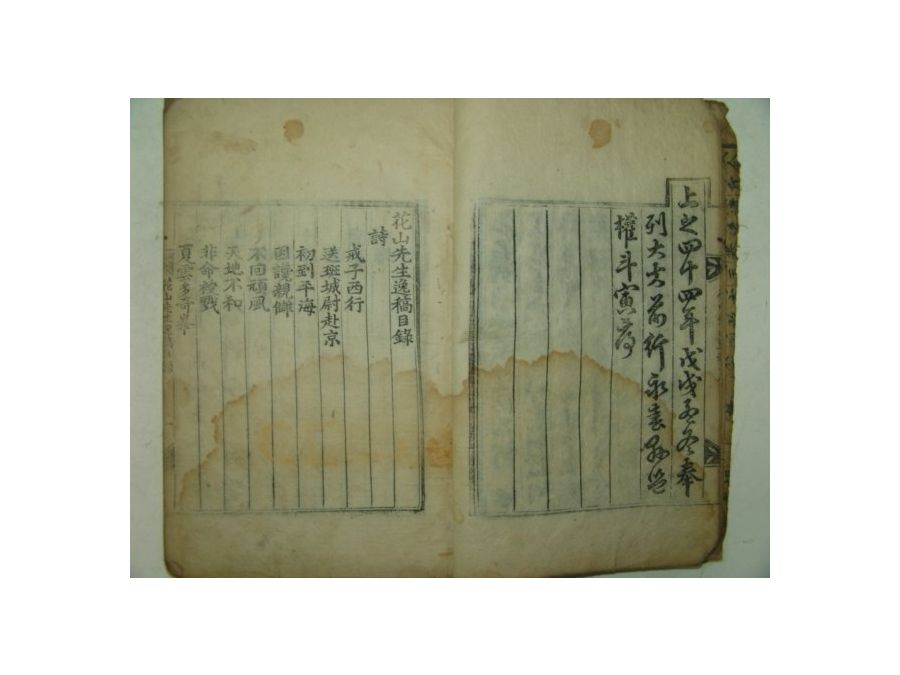 上之四十四年戊戌孟冬奉
列大夫前行永春縣監
權斗寅序
花山先生逸稿目錄
詩
戒子西行
送斑城尉赴京
初到平海
因謾親讎
不回頑風
天地不和
非命檢戮
夏雲多奇峯